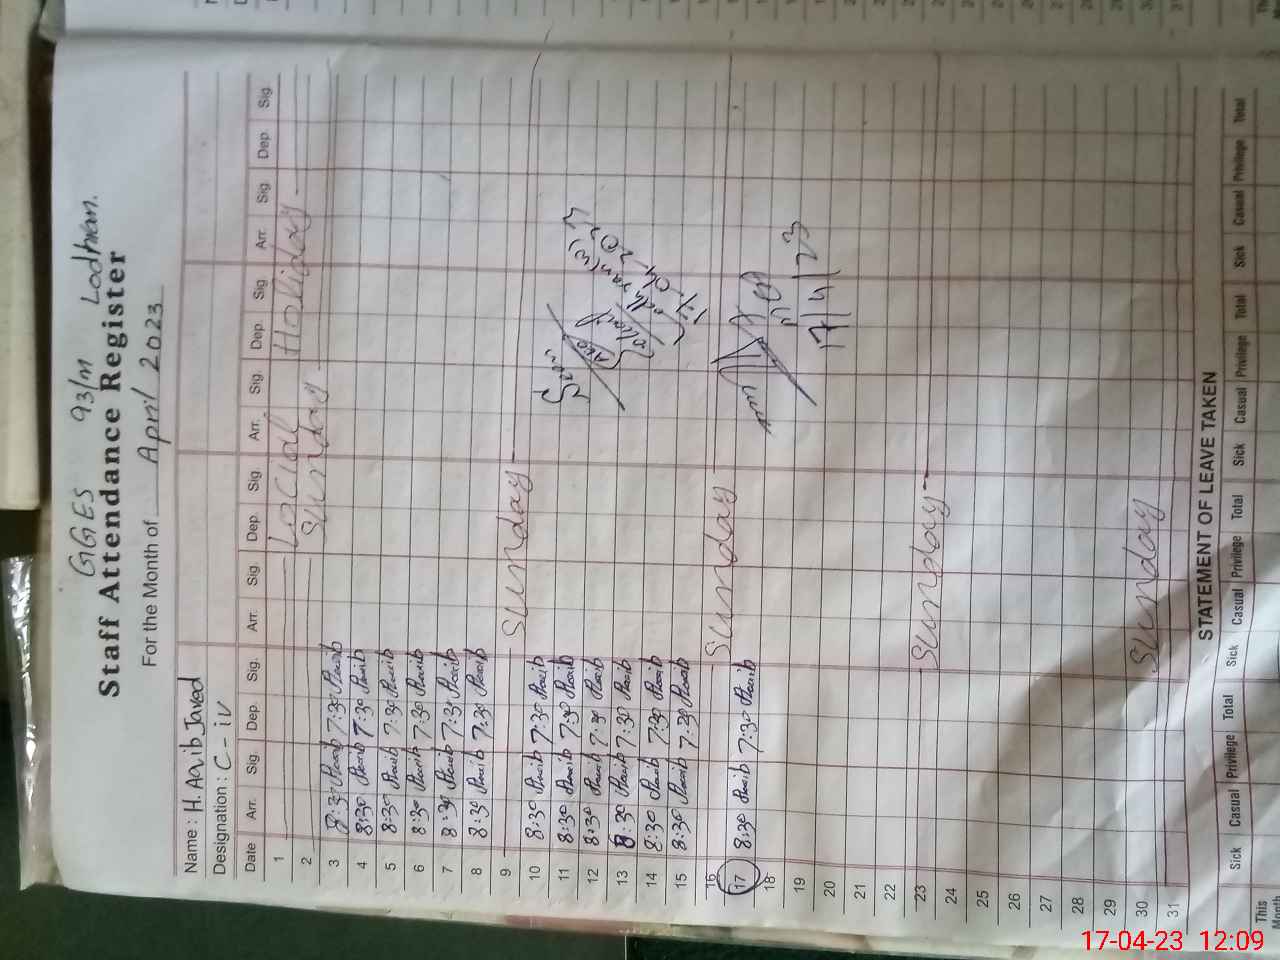 GGES 93/m Lodhran.
Staff Attendance Register
For the Month of April 2023
Name : H. Aqib Javed
Designation : C - iv
Date Arr. Sig Dep. Sig. Arr. Sig. Dep. Sig Arr. Sig. Dep. Sig Arr. Sig Dep. Sig.
1 Local Holiday
2 Sunday
3 8:30 7:30
4 8:30 7:30
5 8:30 7:30
6 8:30 7:30
7 8:30 7:30
8 8:30 7:30
9 Sunday
10 8:30 7:30
11 8:30 7:30
12 8:30 7:30
13 8:30 7:30
14 8:30 7:30
15 8:30 7:30
16 Sunday
17 8:30 7:30
18
19
20
21
22
23 Sunday
24
25
26
27
28
29
30 Sunday
31
17-04-2023
17/4/23
STATEMENT OF LEAVE TAKEN
Sick Casual Privilege Total Sick Casual Privilege Total Sick Casual Privilege Total Sick Casual Privilege Total
This Month
17-04-23 12:09